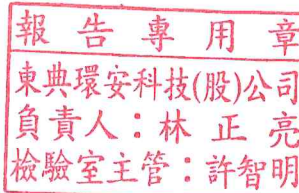 報告專用章
東典環安科技(股)公司
負責人：林正亮
檢驗室主管：許智明